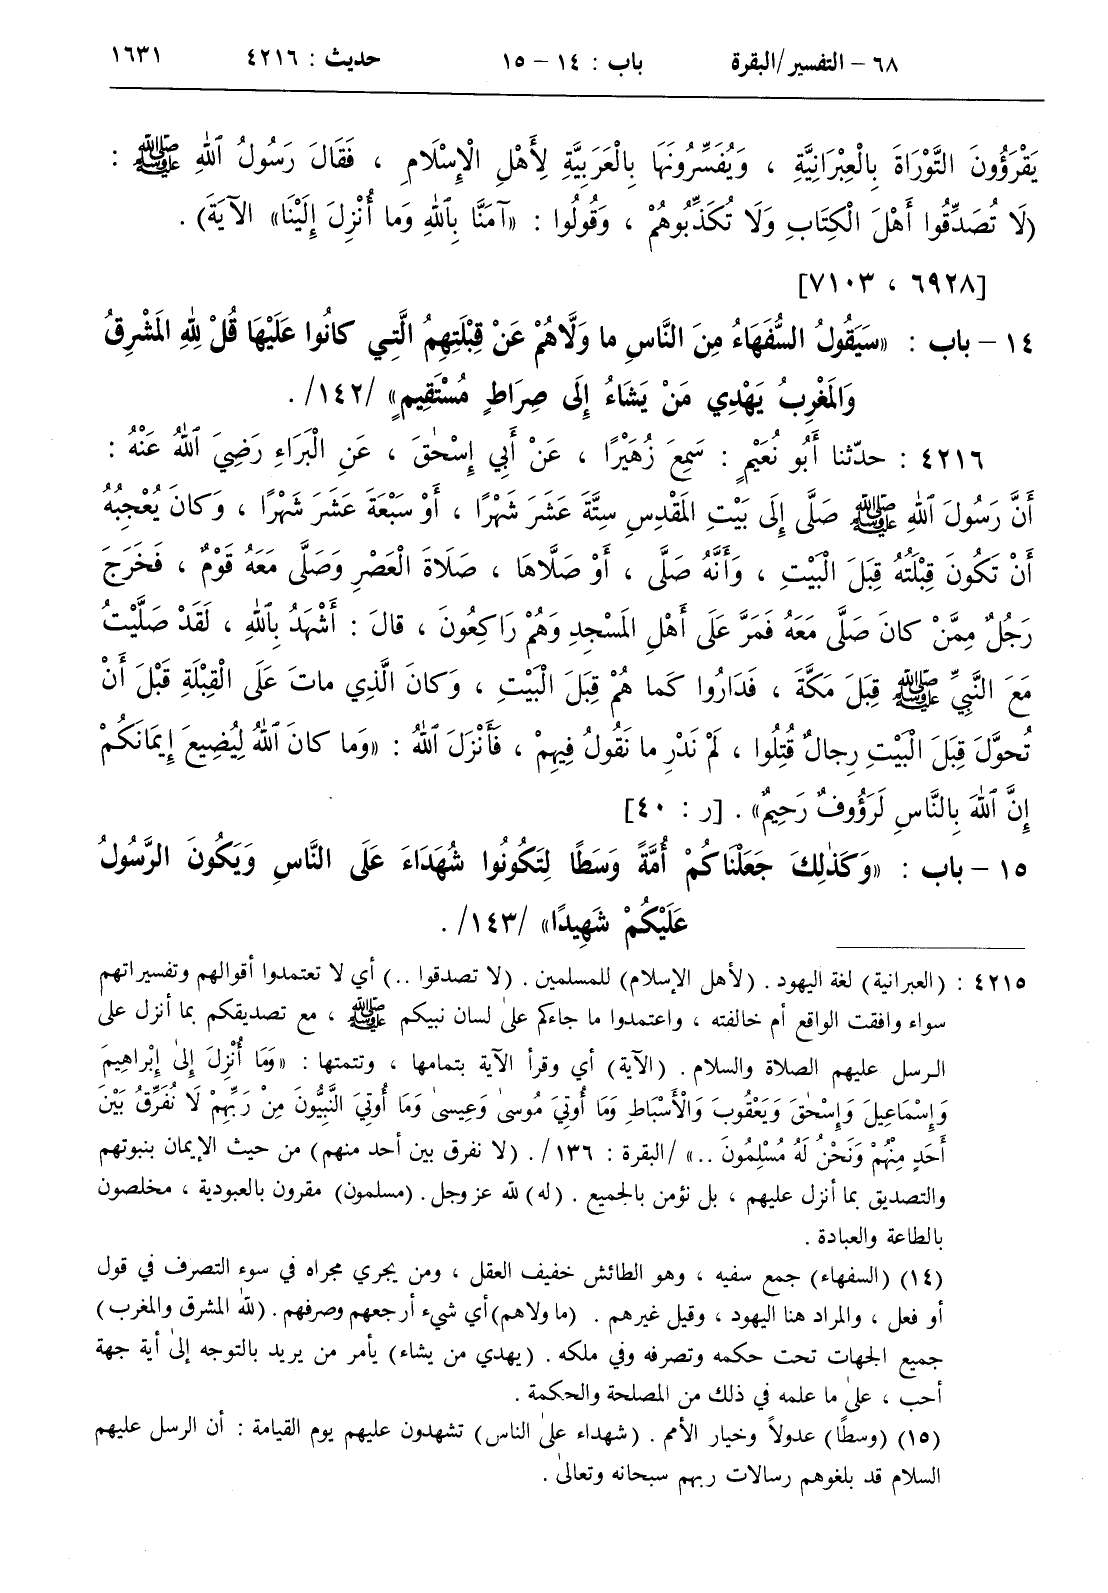 ٦٨ – التفسير/البقرة باب : ١٤ – ١٥ حديث : ٤٢١٦ ١٦٣١
يَقْرَؤُونَ التَّوْرَاةَ بِالْعِبْرَانِيَّةِ ، وَيُفَسِّرُونَهَا بِالْعَرَبِيَّةِ لِأَهْلِ الْإِسْلَامِ ، فَقَالَ رَسُولُ اللهِ ﷺ :
(لَا تُصَدِّقُوا أَهْلَ الْكِتَابِ وَلَا تُكَذِّبُوهُمْ ، وَقُولُوا : «آمَنَّا بِاللهِ وَما أُنْزِلَ إِلَيْنَا» الآيَةَ) .
[٦٩٢٨ ، ٧١٠٣]
١٤ – باب : «سَيَقُولُ السُّفَهَاءُ مِنَ النَّاسِ ما وَلَّاهُمْ عَنْ قِبْلَتِهِمُ الَّتِي كانُوا عَلَيْهَا قُلْ لِلهِ المَشْرِقُ
وَالمَغْرِبُ يَهْدِي مَنْ يَشَاءُ إِلَى صِرَاطٍ مُسْتَقِيمٍ» /١٤٢/ .
٤٢١٦ : حدّثنا أَبُو نُعَيْمٍ : سَمِعَ زُهَيْرًا ، عَنْ أَبِي إِسْحٰقَ ، عَنِ الْبَرَاءِ رَضِيَ اللهُ عَنْهُ :
أَنَّ رَسُولَ اللهِ ﷺ صَلَّى إِلَى بَيْتِ المَقْدِسِ سِتَّةَ عَشَرَ شَهْرًا ، أَوْ سَبْعَةَ عَشَرَ شَهْرًا ، وَكانَ يُعْجِبُهُ
أَنْ تَكُونَ قِبْلَتُهُ قِبَلَ الْبَيْتِ ، وَأَنَّهُ صَلَّى ، أَوْ صَلَّاهَا ، صَلَاةَ الْعَصْرِ وَصَلَّى مَعَهُ قَوْمٌ ، فَخَرَجَ
رَجُلٌ مِمَّنْ كانَ صَلَّى مَعَهُ فَمَرَّ عَلَى أَهْلِ المَسْجِدِ وَهُمْ رَاكِعُونَ ، قالَ : أَشْهَدُ بِاللهِ ، لَقَدْ صَلَّيْتُ
مَعَ النَّبِيِّ ﷺ قِبَلَ مَكَّةَ ، فَدَارُوا كَما هُمْ قِبَلَ الْبَيْتِ ، وَكانَ الَّذِي ماتَ عَلَى الْقِبْلَةِ قَبْلَ أَنْ
تُحوَّلَ قِبَلَ الْبَيْتِ رِجالٌ قُتِلُوا ، لَمْ نَدْرِ ما نَقُولُ فِيهِمْ ، فَأَنْزَلَ اللهُ : «وَما كانَ اللهُ لِيُضِيعَ إِيمَانَكُمْ
إِنَّ اللهَ بِالنَّاسِ لَرَؤُوفٌ رَحِيمٌ» . [ر : ٤٠]
١٥ – باب : «وَكَذٰلِكَ جَعَلْنَاكُمْ أُمَّةً وَسَطًا لِتَكُونُوا شُهَدَاءَ عَلَى النَّاسِ وَيَكُونَ الرَّسُولُ
عَلَيْكُمْ شَهِيدًا» /١٤٣/ .
٤٢١٥ : (العبرانية) لغة اليهود . (لأهل الإسلام) للمسلمين . (لا تصدقوا ..) أي لا تعتمدوا أقوالهم وتفسيراتهم
سواء وافقت الواقع أم خالفته ، واعتمدوا ما جاءكم على لسان نبيكم ﷺ ، مع تصديقكم بما أنزل على
الرسل عليهم الصلاة والسلام . (الآية) أي وقرأ الآية بتمامها ، وتتمتها : «وَمَا أُنْزِلَ إِلَىٰ إِبْرَاهِيمَ
وَإِسْمَاعِيلَ وَإِسْحٰقَ وَيَعْقُوبَ وَالْأَسْبَاطِ وَمَا أُوتِيَ مُوسىٰ وَعِيسىٰ وَمَا أُوتِيَ النَّبِيُّونَ مِنْ رَبِّهِمْ لَا نُفَرِّقُ بَيْنَ
أَحَدٍ مِنْهُمْ وَنَحْنُ لَهُ مُسْلِمُونَ ..» /البقرة : ١٣٦/ . (لا نفرق بين أحد منهم) من حيث الإيمان بنبوتهم
والتصديق بما أنزل عليهم ، بل نؤمن بالجميع . (له) لله عز وجل . (مسلمون) مقرون بالعبودية ، مخلصون
بالطاعة والعبادة .
(١٤) (السفهاء) جمع سفيه ، وهو الطائش خفيف العقل ، ومن يجري مجراه في سوء التصرف في قول
أو فعل ، والمراد هنا اليهود ، وقيل غيرهم . (ما ولاهم) أي شيء أرجعهم وصرفهم . (لله المشرق والمغرب)
جميع الجهات تحت حكمه وتصرفه وفي ملكه . (يهدي من يشاء) يأمر من يريد بالتوجه إلىٰ أية جهة
أحب ، علىٰ ما علمه في ذلك من المصلحة والحكمة .
(١٥) (وسطًا) عدولاً وخيار الأمم . (شهداء علىٰ الناس) تشهدون عليهم يوم القيامة : أن الرسل عليهم
السلام قد بلغوهم رسالات ربهم سبحانه وتعالىٰ .